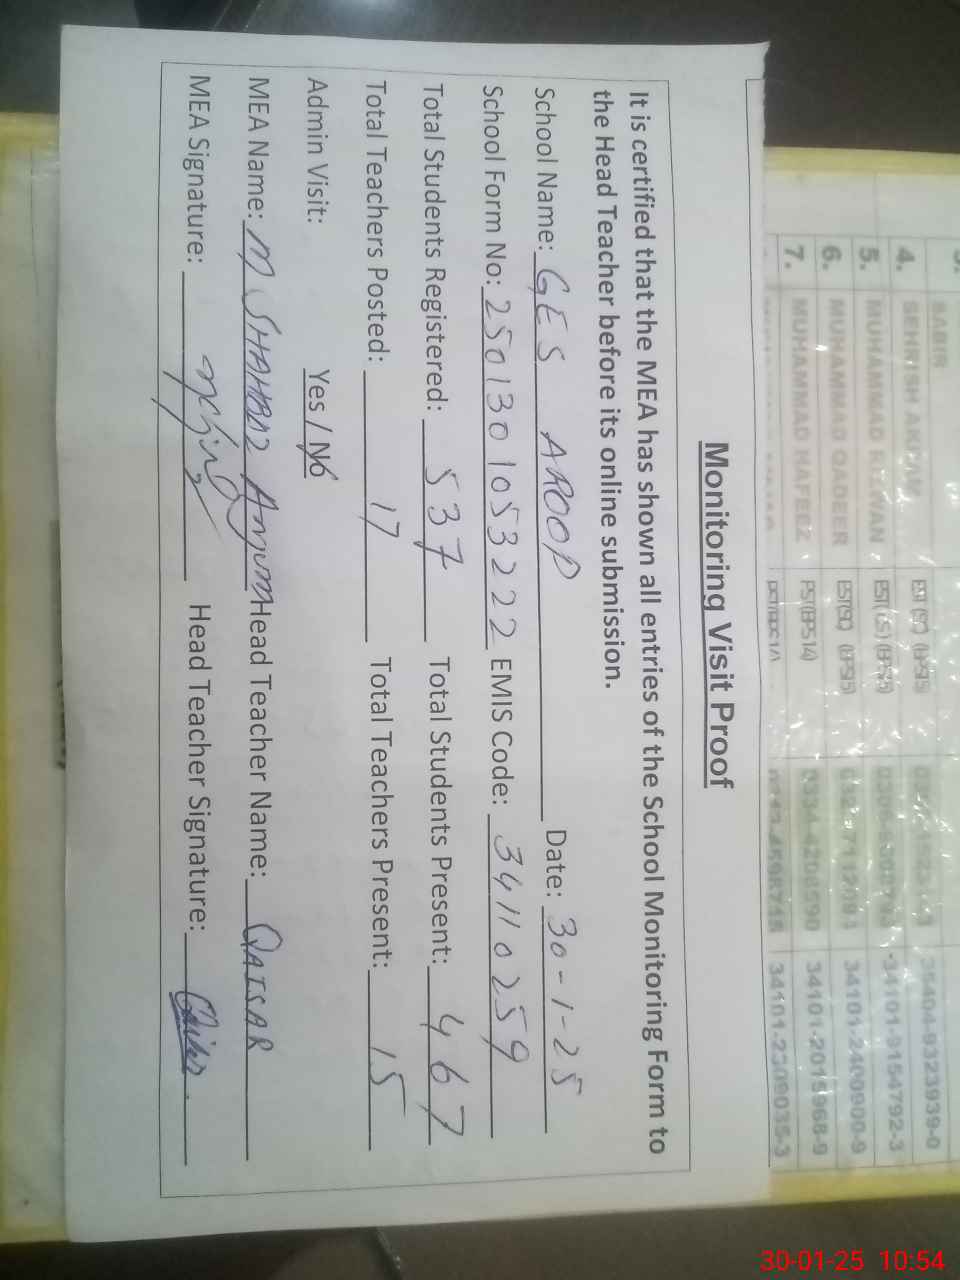 Monitoring Visit Proof
It is certified that the MEA has shown all entries of the School Monitoring Form to
the Head Teacher before its online submission.
School Name: GES AROOP Date: 30-1-25
School Form No: 2501301053222 EMIS Code: 34110259
Total Students Registered: 537 Total Students Present: 467
Total Teachers Posted: 17 Total Teachers Present: 15
Admin Visit: Yes / No
MEA Name: M SHAHBAZ Anjum Head Teacher Name: QAISAR
MEA Signature: Head Teacher Signature:
SABIR
4. SEHRISH AKRAM 35404-9323939-0
5. MUHAMMAD RIZWAN 34101-9154792-3
6. MUHAMMAD QADEER 34101-2400900-9
7. MUHAMMAD HAFEEZ PST(BPS14) 0334-4206590 34101-2015968-9
34101-2309035-3
30-01-25 10:54